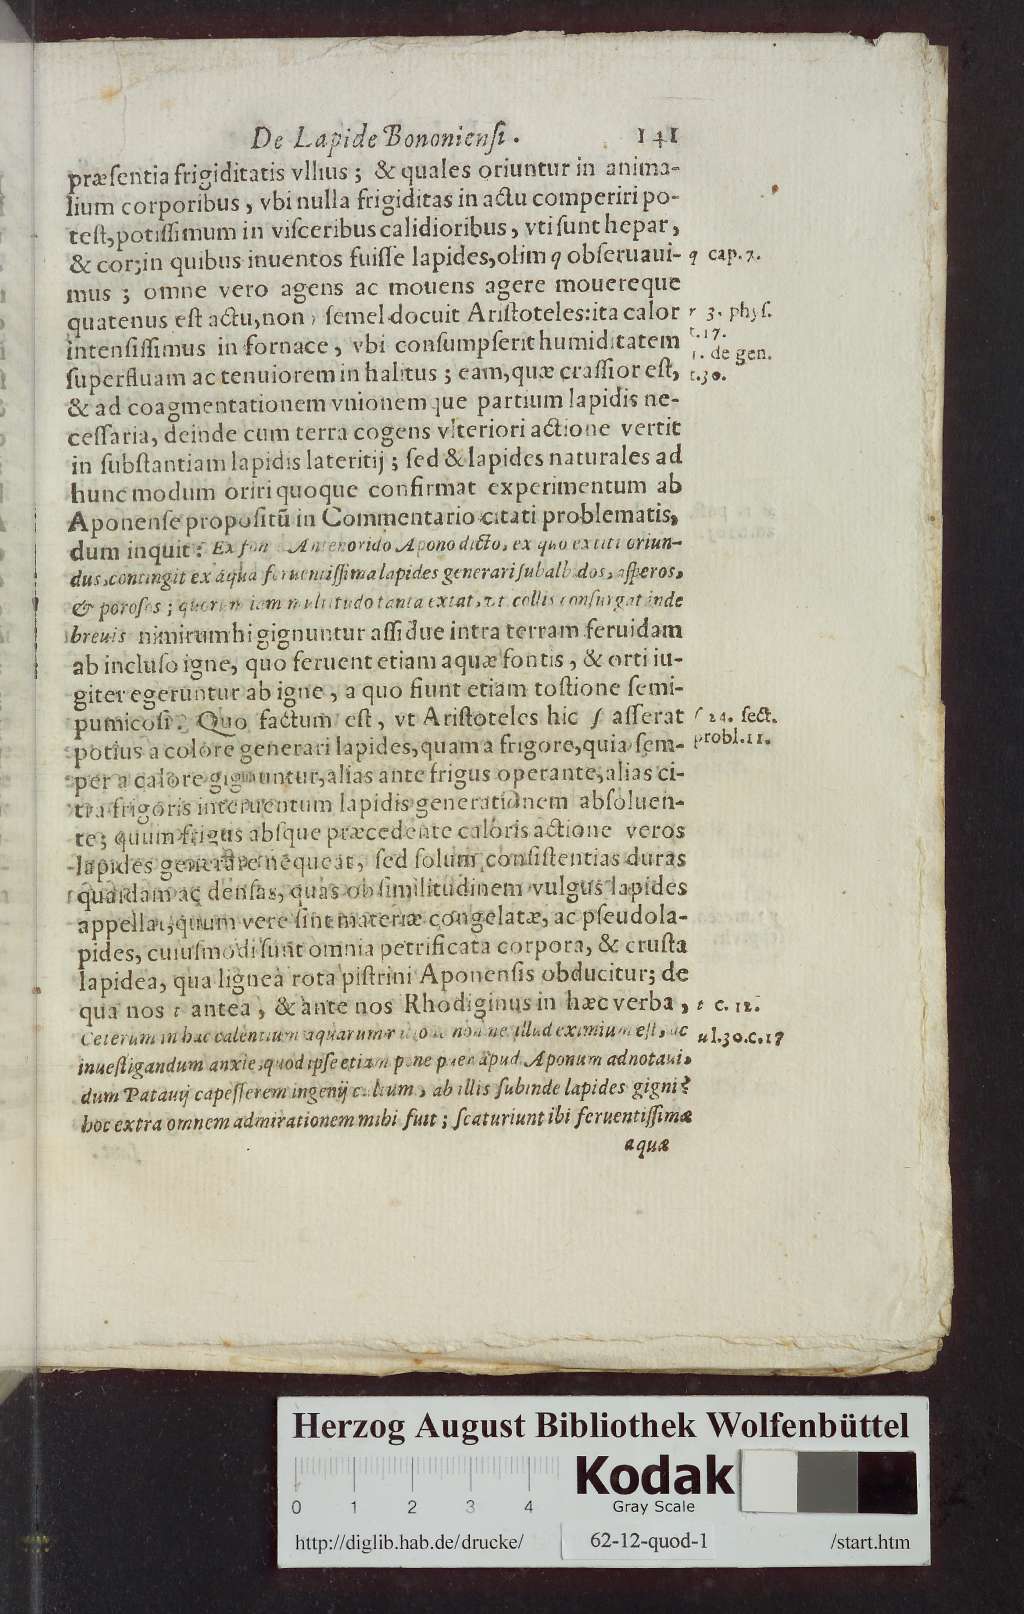 De Lapide Bononiensi. 141
præsentia frigiditatis vllius; & quales oriuntur in anima-
lium corporibus, vbi nulla frigiditas in actu comperiri po-
test, potissimum in visceribus calidioribus, vti sunt hepar,
& cor; in quibus inuentos fuisse lapides, olim q obseruaui- q cap. 7.
mus; omne vero agens ac mouens agere mouereque
quatenus est actu, non r semel docuit Aristoteles: ita calor r 3. phys.
t. 17.
intensissimus in fornace, vbi consumpserit humiditatem 1. de gen.
superfluam ac tenuiorem in halitus; eam, quæ crassior est, t. 30.
& ad coagmentationem vnionemque partium lapidis ne-
cessaria, deinde cum terra cogens vlteriori actione vertit
in substantiam lapidis lateritij; sed & lapides naturales ad
hunc modum oriri quoque confirmat experimentum ab
Aponense propositū in Commentario citati problematis,
dum inquit: Ex fon Antenorido Apono dicto, ex quo extiti oriun-
dus, contingit ex aqua feruentissima lapides generari subalbidos, asperos,
& porosos; quorum iam multitudo tanta extat, vt collis consurgat inde
breuis nimirum hi gignuntur assidue intra terram feruidam
ab incluso igne, quo feruent etiam aquæ fontis, & orti iu-
giter egeruntur ab igne, a quo fiunt etiam tostione semi-
pumicosi. Quo factum est, vt Aristoteles hic ſ asserat ſ 24. sect.
potius a colore generari lapides, quam a frigore, quia sem- probl. 11.
per a calore gignuntur, alias ante frigus operante, alias ci-
tra frigoris interuentum lapidis generationem absoluen-
te; quum frigus absque præcedente caloris actione veros
lapides generare nequeat, sed solum consistentias duras
quasdam ac densas, quas ob similitudinem vulgus lapides
appellat; quum vere sint materiæ congelatæ, ac pseudola-
pides, cuiusmodi sunt omnia petrificata corpora, & crusta
lapidea, qua lignea rota pistrini Aponensis obducitur; de
qua nos t antea, & ante nos Rhodiginus in hæc verba, t c. 12.
Ceterum in hac calentium aquarum ratione nonne illud eximium est, ac ul. 30. c. 17
inuestigandum anxie, quod ipse etiam pene puer apud Aponum adnotaui,
dum Patauij capesserem ingenij cultum, ab illis subinde lapides gigni?
hoc extra omnem admirationem mihi fuit; scaturiunt ibi feruentissimæ
aquæ
Herzog August Bibliothek Wolfenbüttel
0 1 2 3 4
Kodak
Gray Scale
http://diglib.hab.de/drucke/ 62-12-quod-1 /start.htm